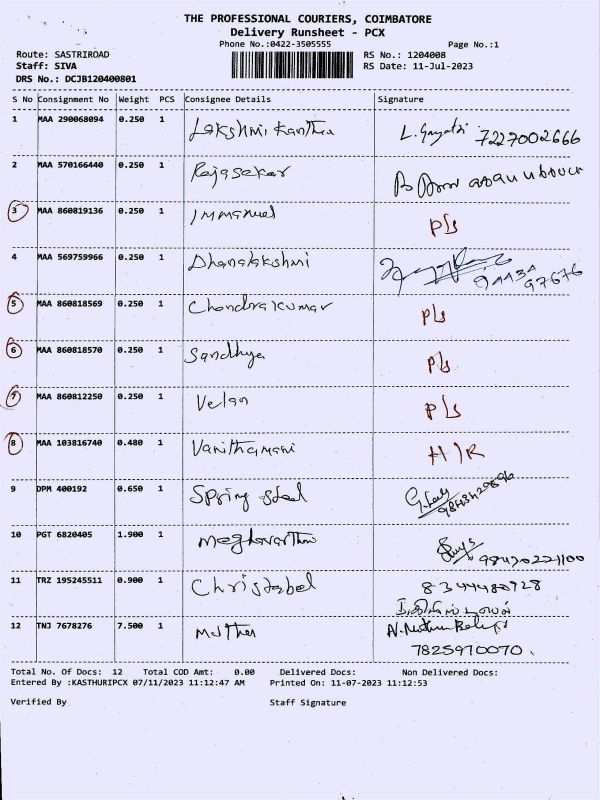 THE PROFESSIONAL COURIERS, COIMBATORE
Delivery Runsheet - PCX
Phone No.:0422-3505555 Page No.:1
Route: SASTRIROAD RS No.: 1204008
Staff: SIVA RS Date: 11-Jul-2023
DRS No.: DCJB120400801
S No Consignment No Weight PCS Consignee Details Signature
1 MAA 290068094 0.250 1 Lakshmi Kantha L. Gayatri 7227002666
2 MAA 570166440 0.250 1 Rajasekar
3 MAA 860819136 0.250 1 Immanuel P/S
4 MAA 569759966 0.250 1 Dhanalakshmi 94434
97676
5 MAA 860818569 0.250 1 Chandrakumar P/S
6 MAA 860818570 0.250 1 Sandhya P/S
7 MAA 860812250 0.250 1 Velan P/S
8 MAA 103816740 0.480 1 Vanithamani H/R
9 DPM 400192 0.650 1 Spring steel
10 PGT 6820405 1.900 1
11 TRZ 195245511 0.900 1 Christabel 8344480728
12 TNJ 7678276 7.500 1
7825970070.
Total No. Of Docs: 12 Total COD Amt: 0.00 Delivered Docs: Non Delivered Docs:
Entered By :KASTHURIPCX 07/11/2023 11:12:47 AM Printed On: 11-07-2023 11:12:53
Verified By Staff Signature